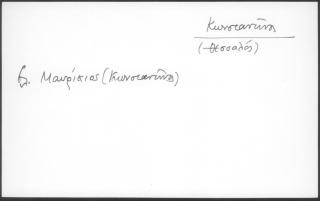 Κωνσταντῖνος
(Θεσσαλός)
βλ. Μαυρίκιος (Κωνσταντῖνος)